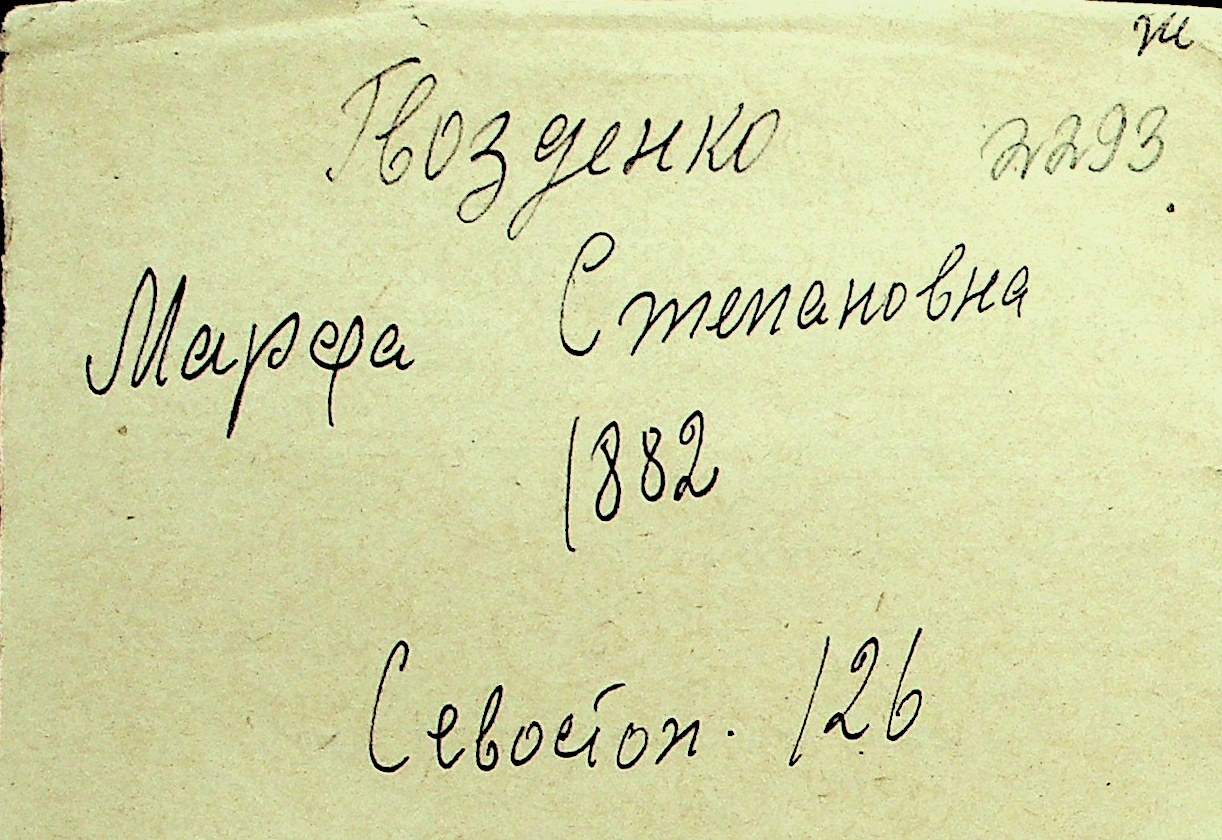 ж
Гвозденко 2293
Марфа Степановна
1882
Севостоп. 126